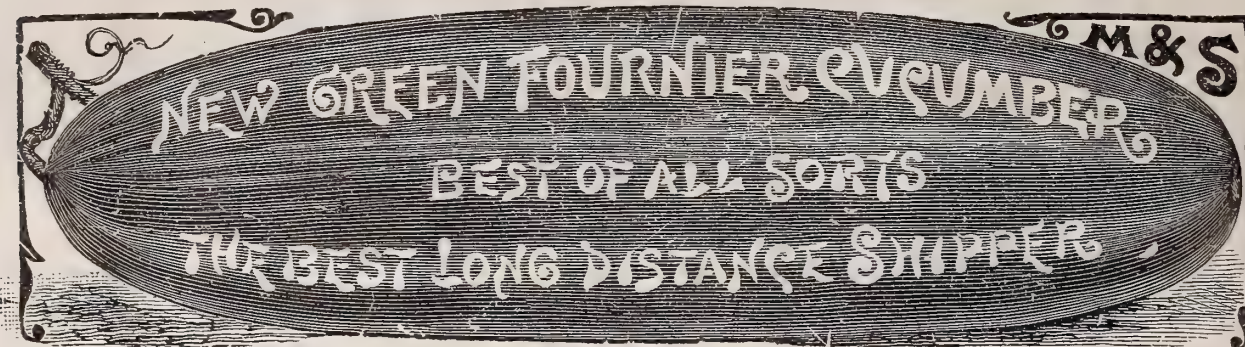 M & S
NEW GREEN FOURNIER CUCUMBER
BEST OF ALL SORTS
THE BEST LONG DISTANCE SHIPPER